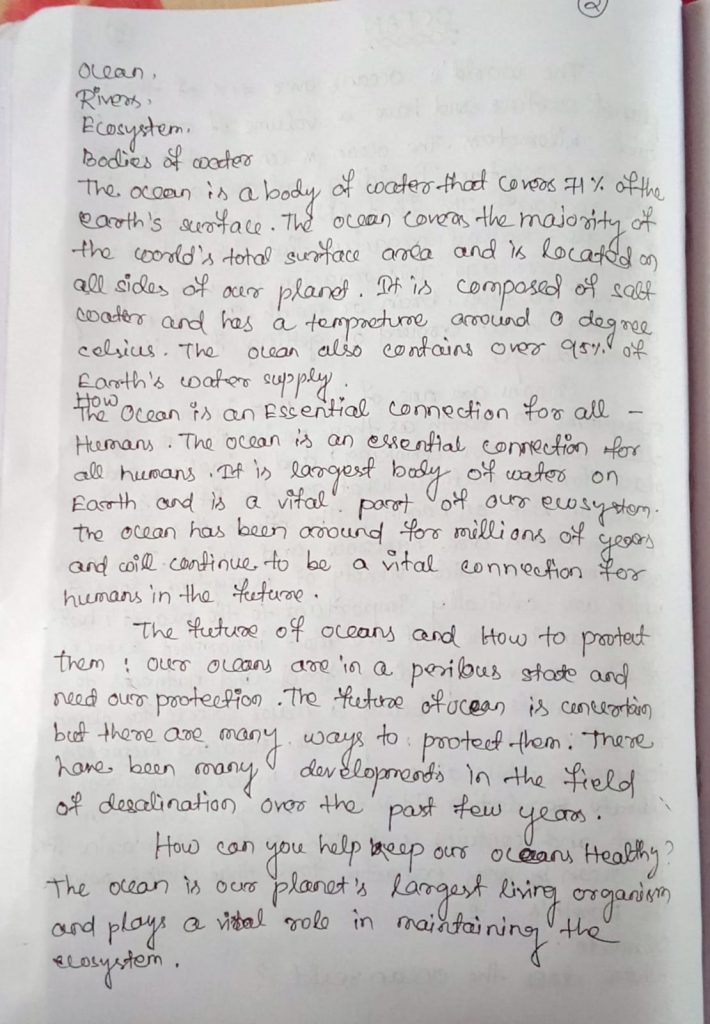 2
Ocean,
Rivers,
Ecosystem.
Bodies of water
The ocean is a body of water that covers 71% of the
earth's surface. The ocean covers the majority of
the world's total surface area and is located on
all sides of our planet. It is composed of salt
water and has a tempreture around 0 degree
celsius. The ocean also contains over 95% of
Earth's water supply.
How
The Ocean is an Essential connection for all -
Humans. The ocean is an essential connection for
all humans. It is largest body of water on
Earth and is a vital part of our ecosystem.
The ocean has been around for millions of years
and will continue to be a vital connection for
humans in the future.
The future of oceans and How to protect
them : our oceans are in a perilous state and
need our protection. The future of ocean is uncertain
but there are many ways to protect them. There
have been many developments in the field
of desalination over the past few years.
How can you help keep our oceans Healthy?
The ocean is our planet's largest living organism
and plays a vital role in maintaining the
ecosystem.